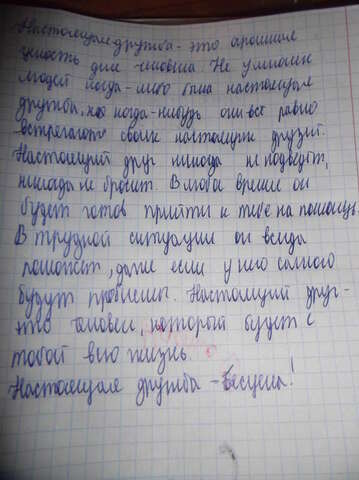 Настоящая дружба - это огромная
ценность для человека. Не у многих
людей когда-либо была настоящая
дружба, но когда-нибудь они всё равно
встречают своих настоящих друзей.
Настоящий друг никогда не подведёт,
никогда не бросит. В любое время он
будет готов прийти к тебе на помощь.
В трудной ситуации он всегда
поможет, даже если у него самого
будут проблемы. Настоящий друг -
это человек, который будет с
тобой всю жизнь.
Настоящая дружба - бесценна!